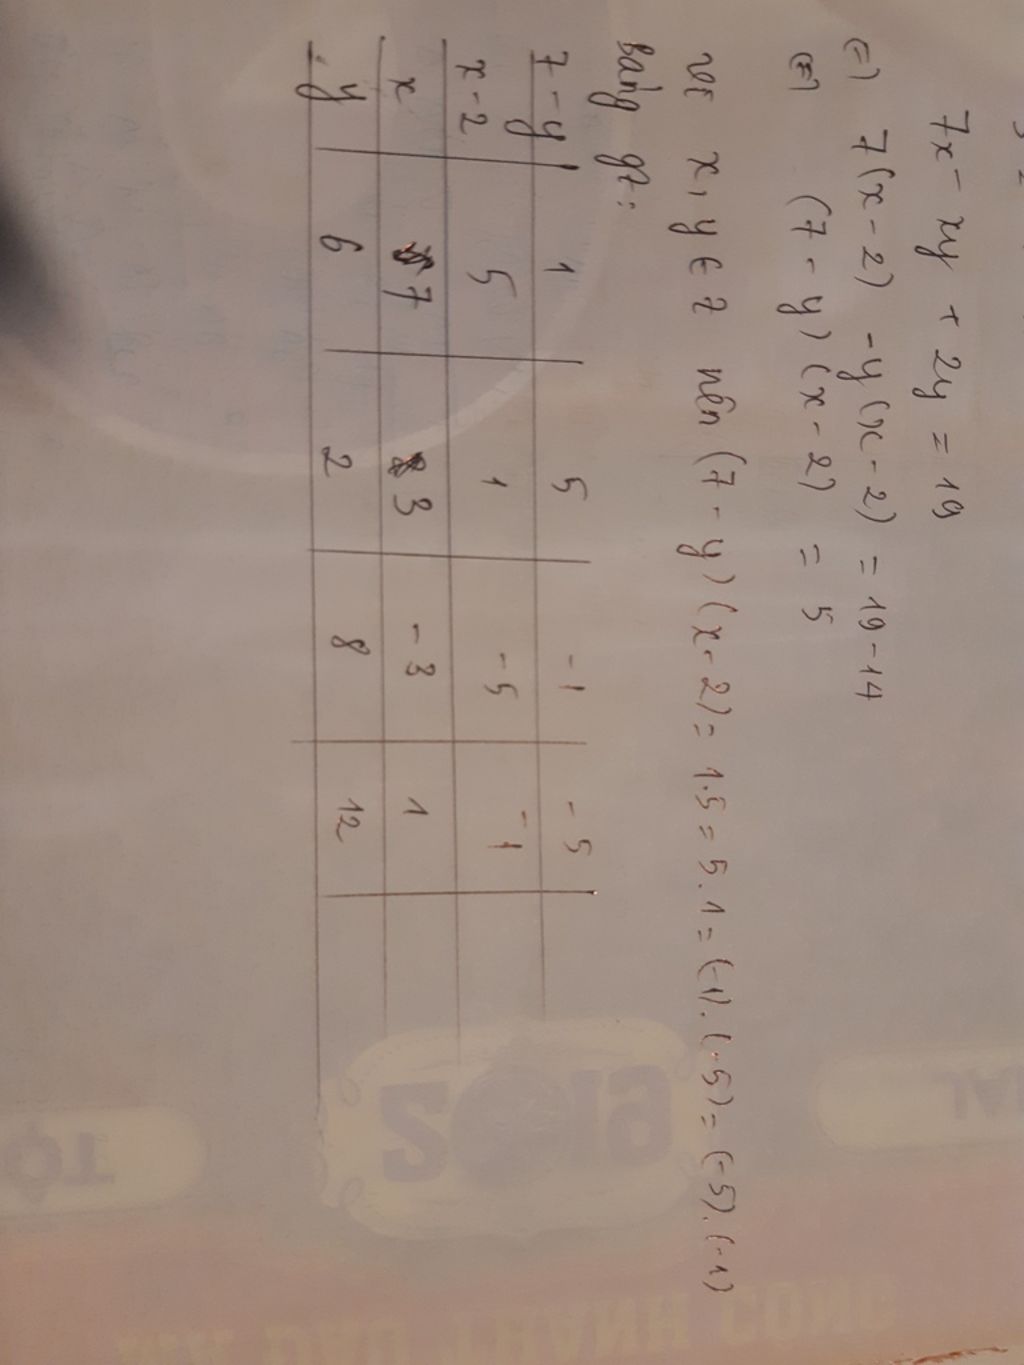 7x - xy + 2y = 19
(=) 7(x - 2) - y(x - 2) = 19 - 14
(=) (7 - y)(x - 2) = 5
vì x, y ∈ Z nên (7 - y)(x - 2) = 1.5 = 5.1 = (-1).(-5) = (-5).(-1)
Bảng gt:
7 - y 1 5 -1 -5
x - 2 5 1 -5 -1
x 7 3 -3 1
y 6 2 8 12
2019
TỘ
THÀNH CÔNG